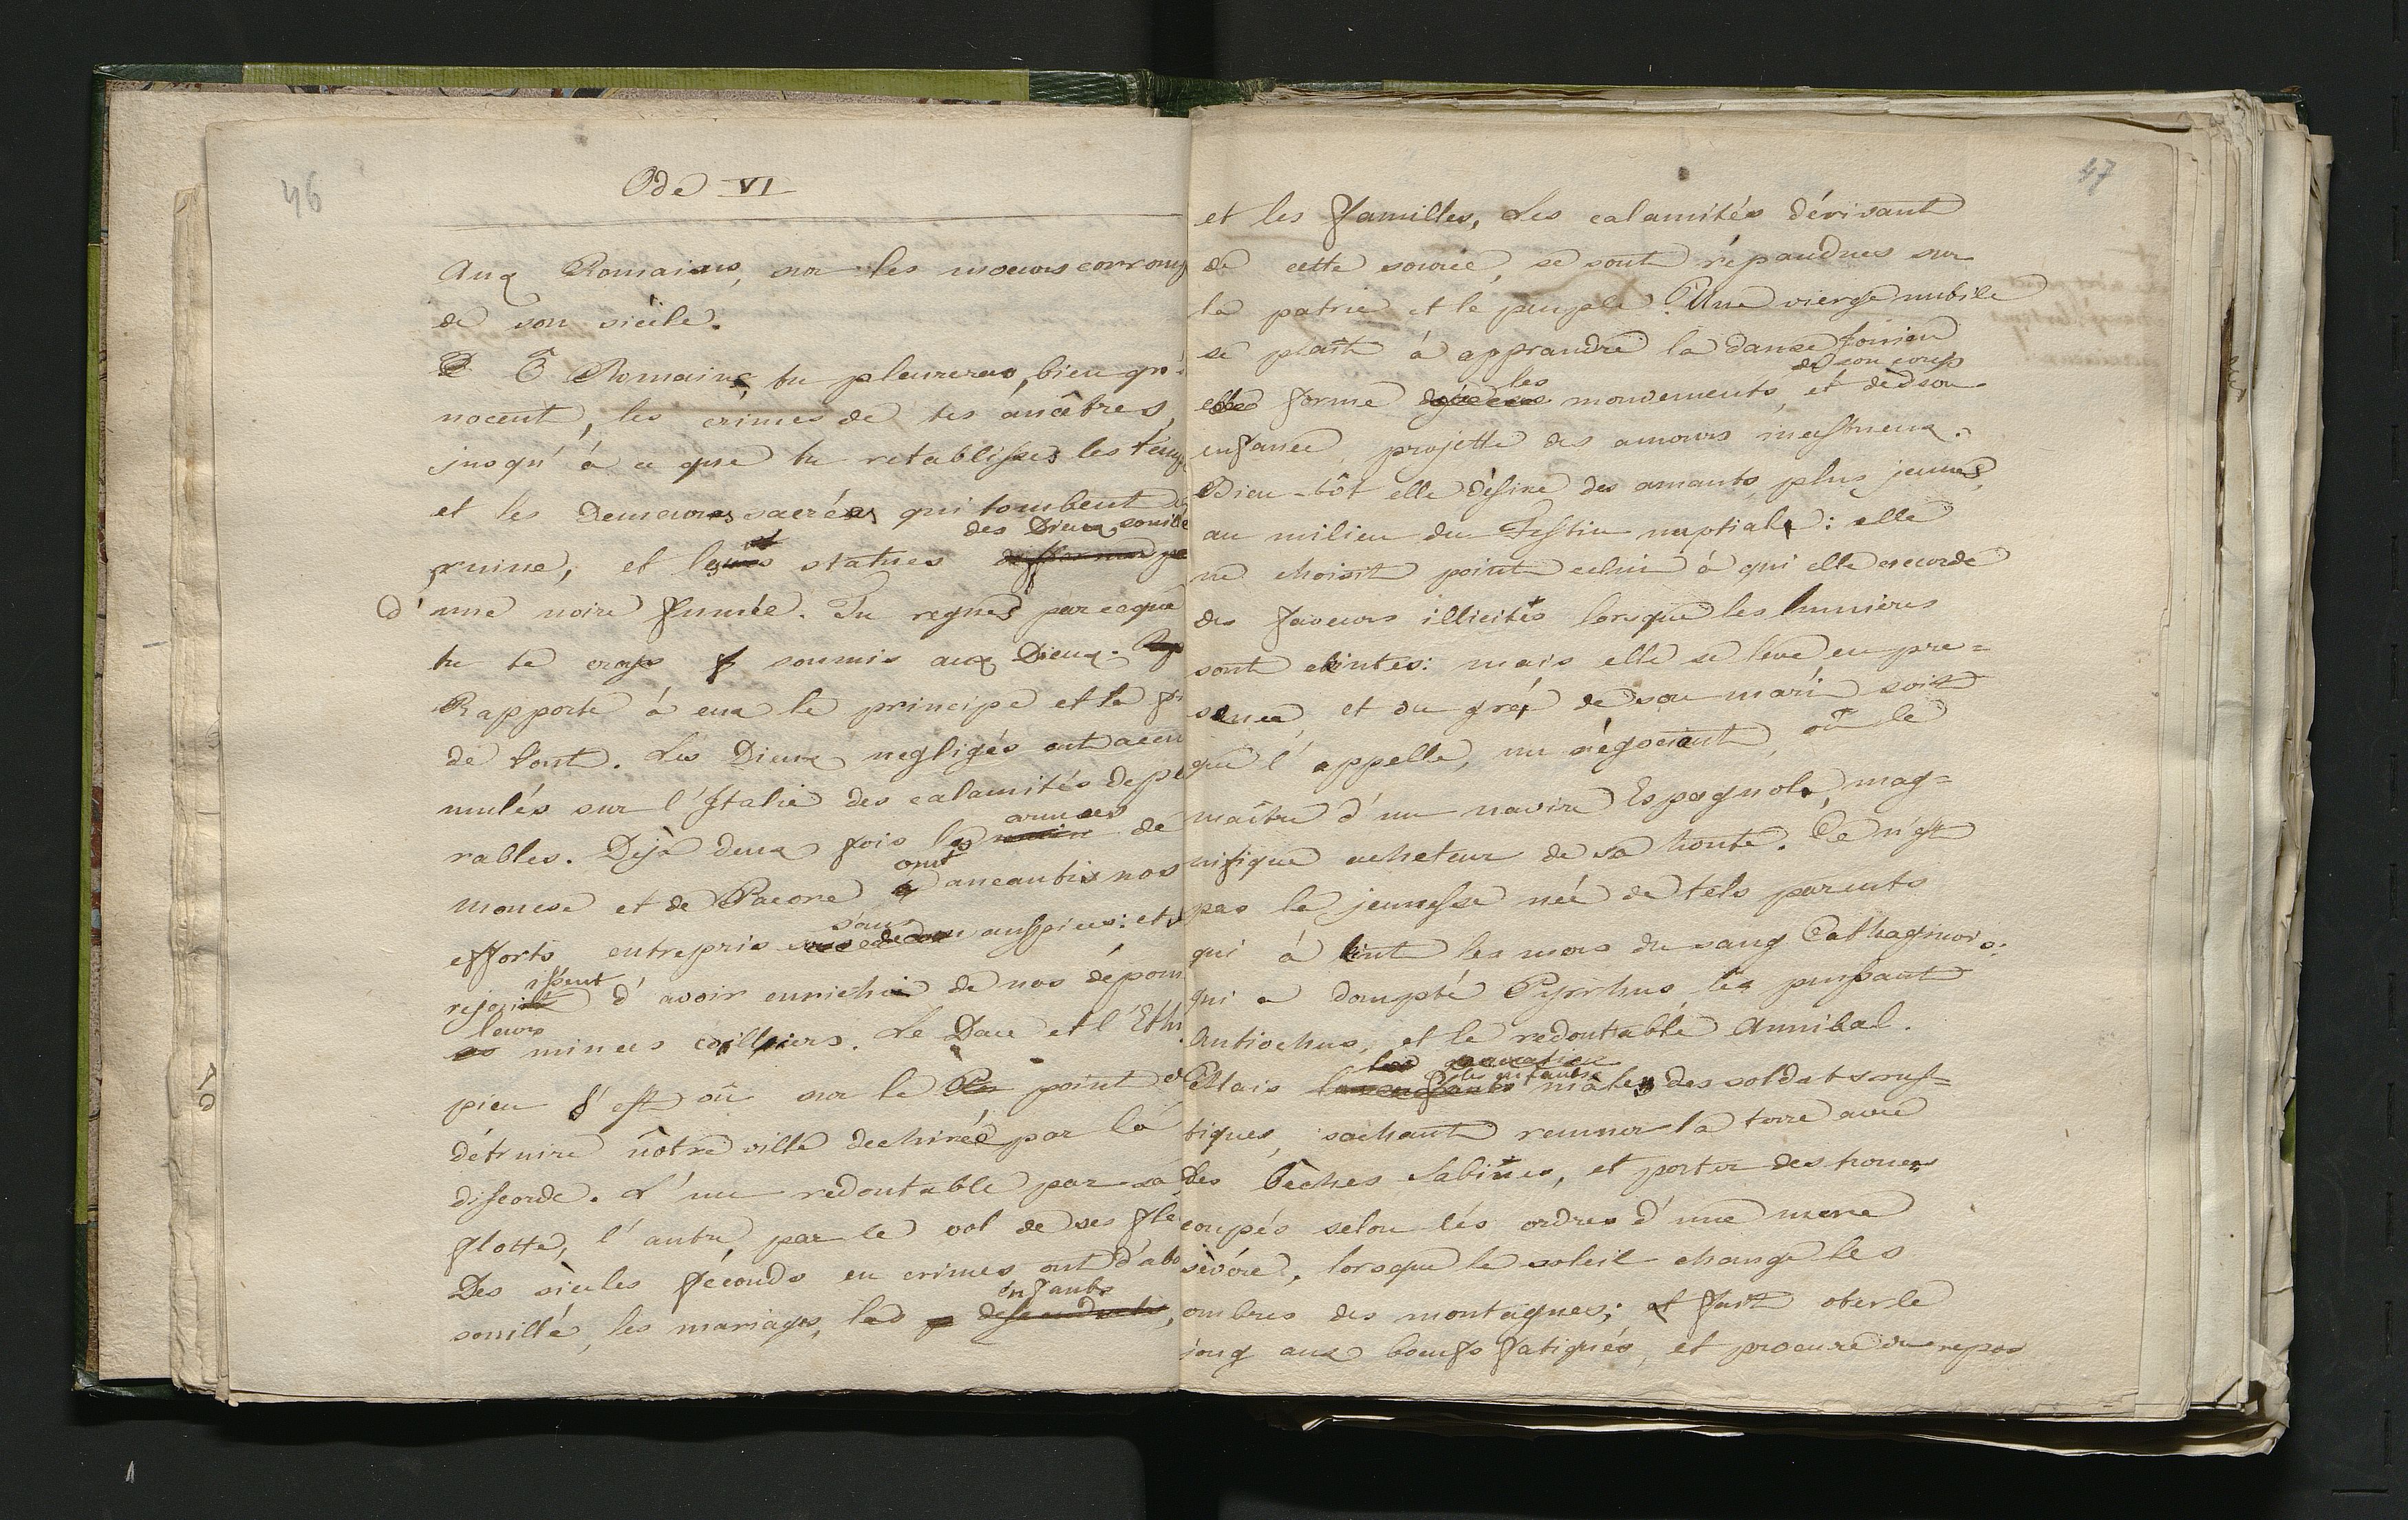 46
Ode VI
Aux Romains, sur les moeurs corromp
de son siècle.
Ô Romains, tu pleureras, bien qu'i
nocent, les crimes de tes ancêtres,
jusqu'à ce que tu retablisses les temp
et les Demeures sacrées qui tombent
des Dieux souillé
ruine, et les statues
d'une noire fumée. Tu regnes parceque
tu te crois soumis aux Dieux.
Rapporte à eux le principe et la fi
de tout. Les Dieux negligés ont accu
mulés sur l'Italie des calamités deplo
armées
rables. Dejà deux fois les de
ont
Monese et de Pacore aneantis nos
sans
efforts entrepris auspices: et
issent
rejoui d'avoir enrichi de nos dépoui
leurs
minces colliers. Le Dace et l'Ethi
pien s'est vû sur le point de
détruire nôtre ville dechirée par la
discorde. L'un redoutable par sa
flotte, l'autre par le vol de ses fle
Des siècles féconds en crimes ont d'abo
enfants
souillé, les mariages, les
47
et les familles, Les calamités dérivant
de cette source, se sont répandues sur
la patrie et le peuple. Une vierge nubile
se plaît à apprandre la danse Ionien
les de son corps
elle forme mouvements, et dès son
enfance projette des amours incestueux.
Bien-tôt elle désire des amants plus jeunes,
au milieu du Festin nuptial: elle
ne choisit point celui à qui elle accorde
des faveurs illicites lorsque les lumieres
sont eteintes: mais elle se leve en pre=
sence, et du gré de son mari soit
que l'appelle, un négociant, où le
maître d'un navire Espagnol, mag=
nifique acheteur de sa honte. Ce n'est
pas la jeunesse née de tels parents
qui à teint les mers du sang Cathaginois:
qui a dompté Pyrrhus, le puissant
Antiochus, et le redoutable Annibal.
les enfants
Mais males des soldats rus=
tiques, sachant remuer la terre avec
des bèches Sabines, et porter des troncs
coupés selon lés ordres d'une mere
sévére, lorsque le soleil change les
ombres des montagnes; et fait oter le
joug aux boeufs fatigués, et procure du repos